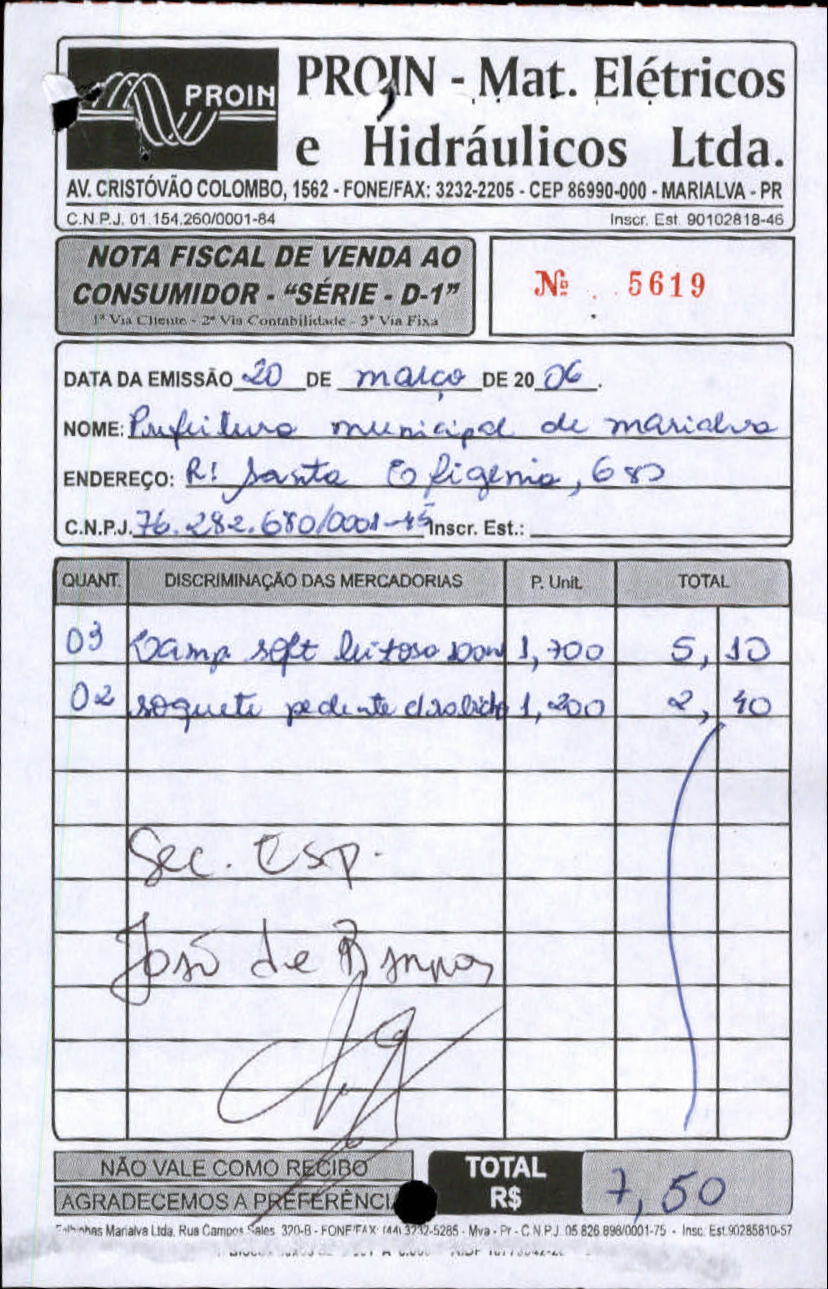 PROIN
PROIN - Mat. Elétricos
e Hidráulicos Ltda.
AV. CRISTÓVÃO COLOMBO, 1562 - FONE/FAX: 3232-2205 - CEP 86990-000 - MARIALVA - PR
C.N.P.J. 01.154.260/0001-84 Inscr. Est. 90102818-46
NOTA FISCAL DE VENDA AO
CONSUMIDOR - "SÉRIE - D-1"
1ª Via Cliente - 2ª Via Contabilidade - 3ª Via Fixa
Nº 5619
DATA DA EMISSÃO 20 DE março DE 20 06.
NOME: Prefeitura municipal de marialva
ENDEREÇO: R: Santa Efigenia, 680
C.N.P.J. 76.282.680/0001-45 Inscr. Est.:
QUANT. DISCRIMINAÇÃO DAS MERCADORIAS P. Unit. TOTAL
03 Lamp soft leitosa 100w 1,700 5,10
02 soquete pendente 1,200 2,40
Sec. Esp.
José de
NÃO VALE COMO RECIBO
AGRADECEMOS A PREFERÊNCIA
TOTAL
R$ 7,50
Marialva Ltda, Rua Campos Sales 320-B - FONE/FAX: (44) 3232-5285 - Mva - Pr - C.N.P.J. 05.826.898/0001-75 - Insc. Est.90285810-57